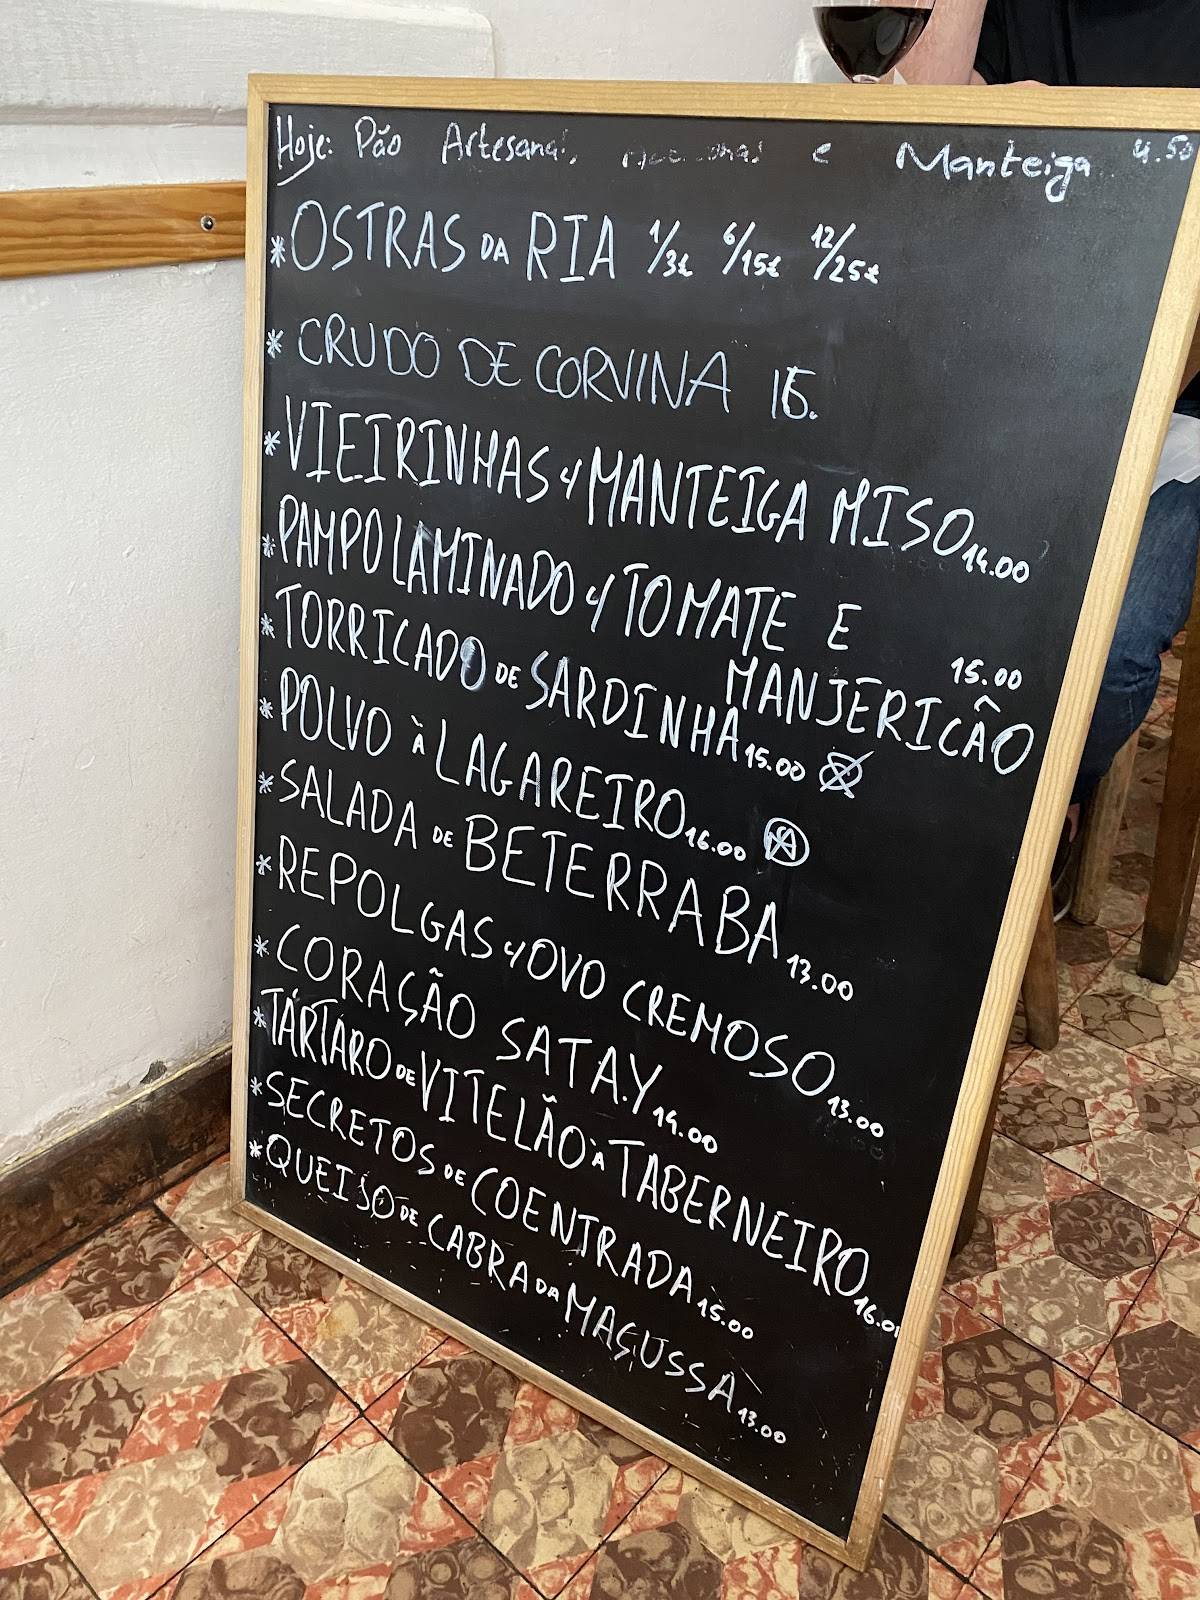 Hoje: Pão Artesanal, e Manteiga 4.50
* OSTRAS DA RIA 1/3€ 6/15€ 12/25€
* CRUDO DE CORVINA 16.
* VIEIRINHAS c/ MANTEIGA MISO 14.00
* PAMPO LAMINADO c/ TOMATE E
MANJERICÃO 15.00
* TORRICADO DE SARDINHA 15.00
* POLVO À LAGAREIRO 16.00
* SALADA DE BETERRABA 13.00
* REPOLGAS c/ OVO CREMOSO 13.00
* CORAÇÃO SATAY 14.00
* TÁRTARO DE VITELÃO À TABERNEIRO 16.00
* SECRETOS DE COENTRADA 15.00
* QUEIJO DE CABRA DA MAÇUSSA 13.00